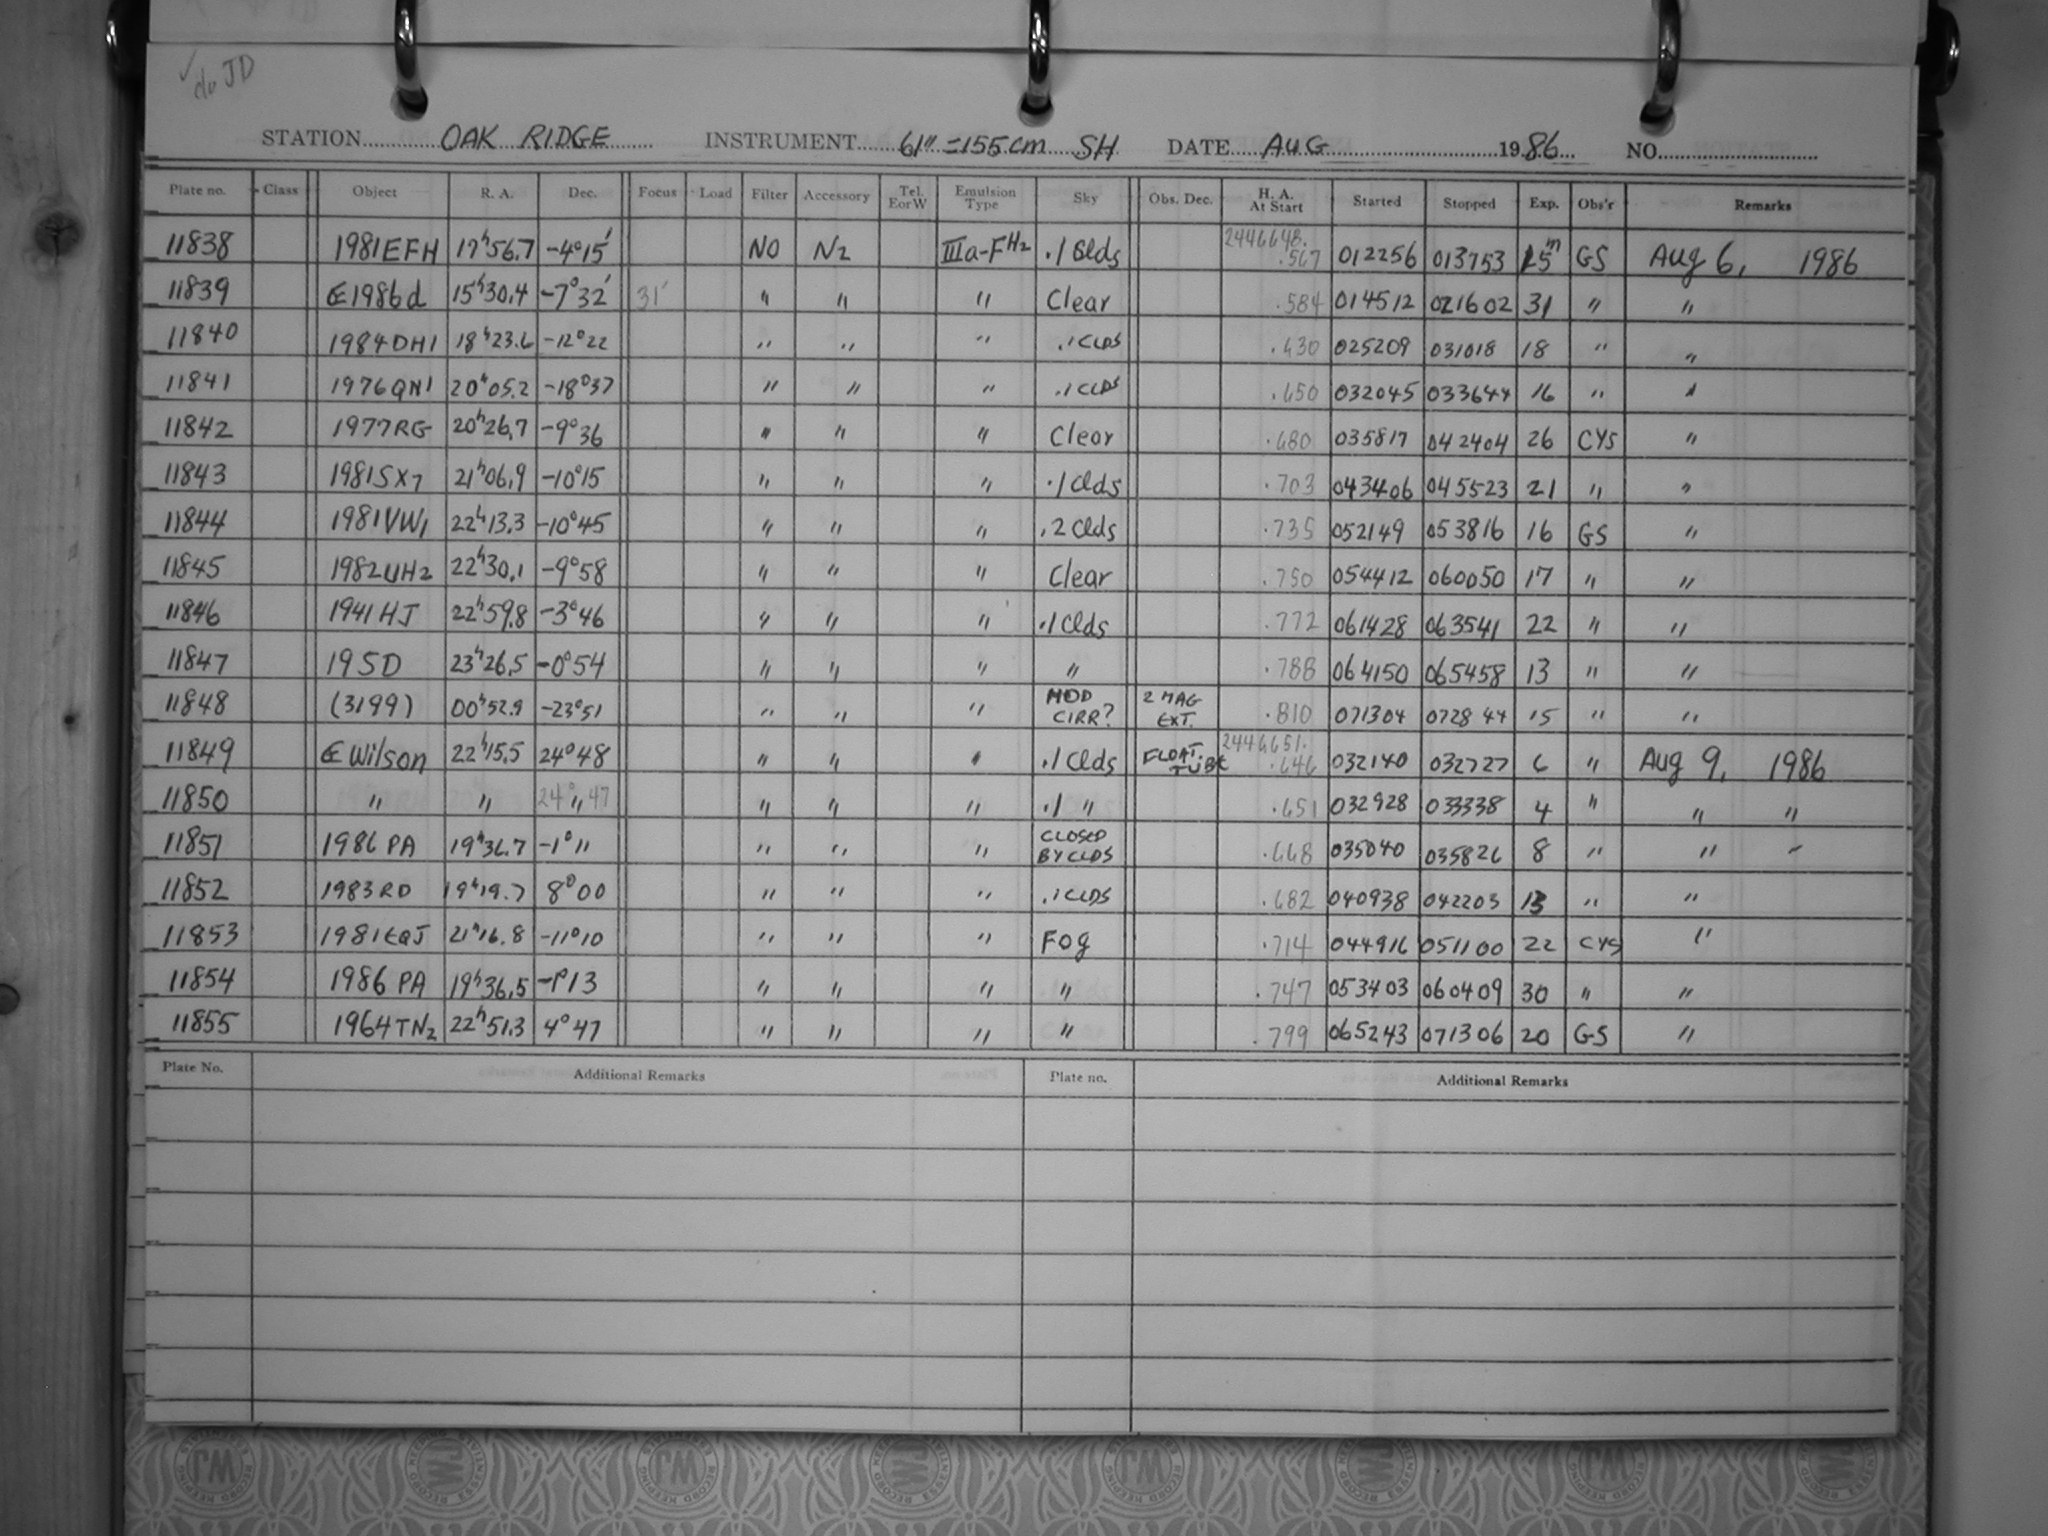 ✓ do JD
STATION OAK RIDGE INSTRUMENT 61" = 155 cm SH DATE AUG 1986 NO.
Plate no. Class Object R. A. Dec. Focus Load Filter Accessory Tel. E or W Emulsion Type Sky Obs. Dec. H. A. At Start Started Stopped Exp. Obs'r Remarks
11838 1981EFH 17h56.7 -4°15' NO N2 IIIa-F H2 .1 Clds 2446648. .567 012256 013753 15m GS Aug 6, 1986
11839 1986d 15h30.4 -7°32' 31' " " " Clear .584 014512 021602 31 " "
11840 1984DH1 18h23.6 -12°22 " " " .1 CLDS .630 025209 031018 18 " "
11841 1976QN1 20h05.2 -18°37 " " " .1 CLDS .650 032045 033644 16 " "
11842 1977RG 20h26.7 -9°36 " " " Clear .680 035817 042404 26 CYS "
11843 1981SX7 21h06.9 -10°15 " " " .1 Clds .703 043406 045523 21 " "
11844 1981VW1 22h13.3 -10°45 " " " .2 Clds .735 052149 053816 16 GS "
11845 1982UH2 22h30.1 -9°58 " " " Clear .750 054412 060050 17 " "
11846 1941HJ 22h59.8 -3°46 " " " .1 Clds .772 061428 063541 22 " "
11847 195D 23h26.5 -0°54 " " " " .788 064150 065458 13 " "
11848 (3199) 00h52.9 -23°51 " " " MOD CIRR? 2 MAG EXT. .810 071304 072844 15 " "
11849 Wilson 22h15.5 24°48 " " " .1 Clds FLOAT. TUBE 2446651. .646 032140 032727 6 " Aug 9, 1986
11850 " " 24°47 " " " .1 " .651 032928 033338 4 " " "
11851 1986 PA 19h36.7 -1°11 " " " CLOSED BY CLDS .668 035040 035826 8 " " "
11852 1983RD 19h19.7 8°00 " " " .1 CLDS .682 040938 042203 13 " "
11853 1981EQJ 21h16.8 -11°10 " " " Fog .714 044916 051100 22 CYS "
11854 1986 PA 19h36.5 -1°13 " " " " .747 053403 060409 30 " "
11855 1964TN2 22h51.3 4°47 " " " " .799 065243 071306 20 GS "
Plate No. Additional Remarks Plate no. Additional Remarks